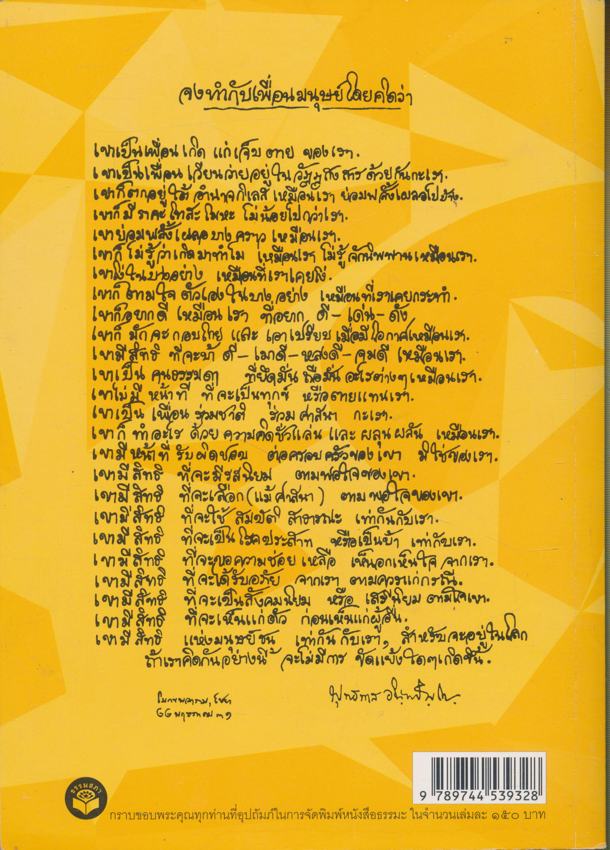 จงทำกับเพื่อนมนุษย์โดยคิดว่า
เขาเป็นเพื่อน เกิด แก่ เจ็บ ตาย ของเรา.
เขาเป็นเพื่อน เวียนว่ายอยู่ใน วัฏฏสงสาร ด้วยกันกะเรา.
เขาก็ตกอยู่ใต้ อำนาจกิเลส เหมือนเรา ย่อมพลั้งเผลอไปบ้าง.
เขาก็ มีราคะ โทสะ โมหะ ไม่น้อยไปกว่าเรา.
เขาย่อมพลั้งเผลอบางคราว เหมือนเรา.
เขาก็ ไม่รู้ว่าเกิดมาทำไม เหมือนเรา ไม่รู้จักนิพพานเหมือนเรา.
เขาโง่ในบางอย่าง เหมือนที่เราเคยโง่.
เขาก็ ตามใจ ตัวเองในบางอย่าง เหมือนที่เราเคยกระทำ.
เขาก็อยากดี เหมือนเรา ที่อยาก ดี - เด่น - ดัง
เขาก็ มักจะ กอบโกย และ เอาเปรียบ เมื่อมีโอกาสเหมือนเรา.
เขามีสิทธิ ที่จะบ้าดี - เมาดี - หลงดี - จมดี เหมือนเรา.
เขาเป็น คนธรรมดา ที่ยึดมั่น ถือมั่น อะไรต่างๆ เหมือนเรา.
เขาไม่มี หน้าที่ ที่จะเป็นทุกข์ หรือตายแทนเรา.
เขาเป็น เพื่อน ร่วมชาติ ร่วม ศาสนา กะเรา.
เขาก็ ทำอะไร ด้วย ความคิดชั่วแล่น และ ผลุนผลัน เหมือนเรา.
เขามีหน้าที่ รับผิดชอบ ต่อครอบครัวของเขา มิใช่ของเรา.
เขามี สิทธิ ที่จะมีรสนิยม ตามพอใจของเขา.
เขามี สิทธิ ที่จะเลือก (แม้ศาสนา) ตาม พอใจของเขา.
เขามี สิทธิ ที่จะใช้ สมบัติ สาธารณะ เท่ากันกับเรา.
เขามี สิทธิ ที่จะเป็นโรคประสาท หรือเป็นบ้า เท่ากับเรา.
เขามี สิทธิ ที่จะขอความช่วย เหลือ เห็นอกเห็นใจ จากเรา.
เขามี สิทธิ ที่จะได้รับอภัย จากเรา ตามควรแก่กรณี.
เขามี สิทธิ ที่จะเป็นสังคมนิยม หรือ เสรีนิยม ตามใจเขา.
เขามี สิทธิ ที่จะเห็นแก่ตัว ก่อนเห็นแก่ผู้อื่น.
เขามี สิทธิ แห่งมนุษยชน เท่ากันกับเรา, สำหรับจะอยู่ในโลก
ถ้าเราคิดกันอย่างนี้ จะไม่มีการ ขัดแย้งใดๆเกิดขึ้น.
พุทธทาส อินฺทปัญฺโญ.
โมกขพลาราม, ไชยา
๒๒ พฤษภาคม ๓๑
9 789744 539328
ธรรมสภา
กราบขอบพระคุณทุกท่านที่อุปถัมภ์ในการจัดพิมพ์หนังสือธรรมะ ในจำนวนเล่มละ ๑๕๐ บาท